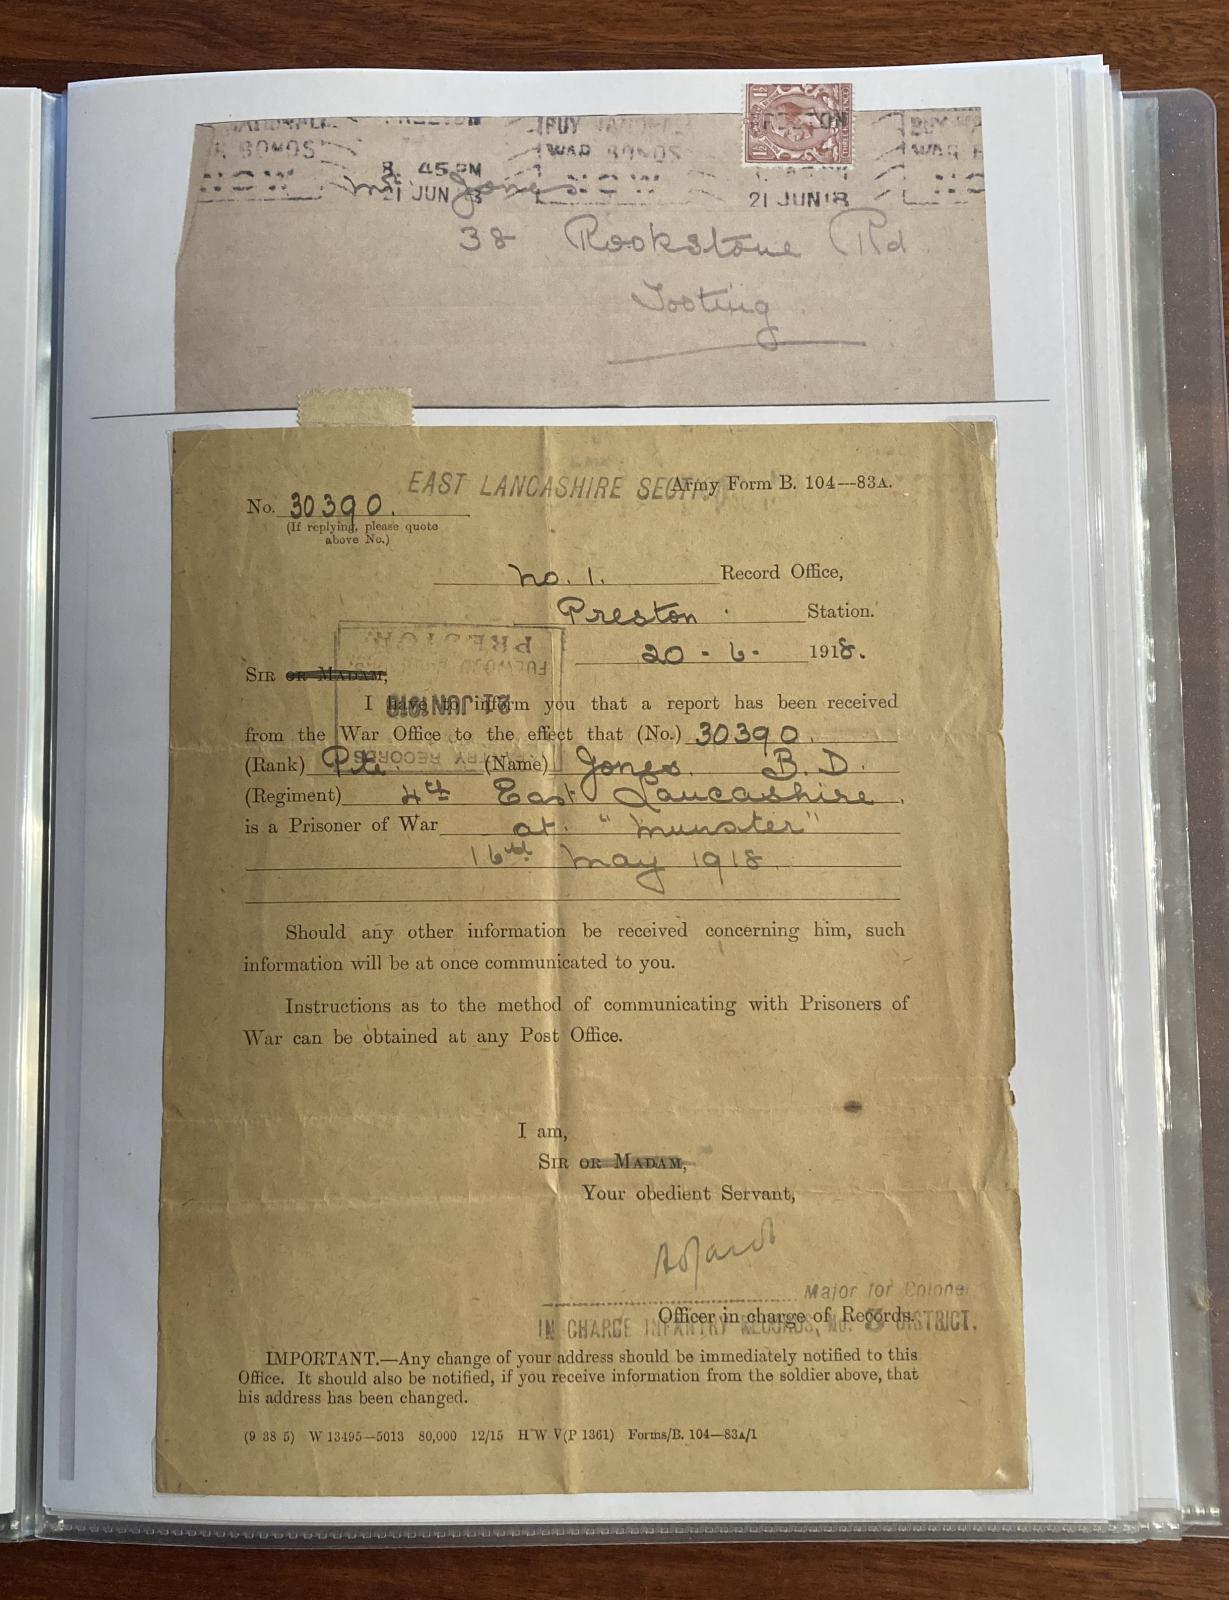 NATIONAL PRESTON BUY NATIONAL PRESTON BUY NA
R BONDS WAR BONDS WAR B
8. 45 PM
NOW 21 JUN 18 NOW 21 JUN 18 NO
1½ 1½
Mr. Jones
38 Rookstone Rd
Tooting
EAST LANCASHIRE SECTION Army Form B. 104—83A.
No. 30390.
(If replying, please quote
above No.)
No. 1. Record Office,
Preston Station.
20 - 6 - 1918.
PRESTON
FULWOOD BARRACKS
21 JUN 1918
INFANTRY RECORDS
SIR OR MADAM,
I have to inform you that a report has been received
from the War Office to the effect that (No.) 30390.
(Rank) Pte. (Name) Jones. B. D.
(Regiment) 4th East Lancashire.
is a Prisoner of War at "Munster"
16th May 1918.
Should any other information be received concerning him, such
information will be at once communicated to you.
Instructions as to the method of communicating with Prisoners of
War can be obtained at any Post Office.
I am,
SIR OR MADAM,
Your obedient Servant,
Major for Colonel
Officer in charge of Records.
IN CHARGE INFANTRY RECORDS, No. 3 DISTRICT.
IMPORTANT.—Any change of your address should be immediately notified to this
Office. It should also be notified, if you receive information from the soldier above, that
his address has been changed.
(9 38 5) W 13495—5013 80,000 12/15 H W V(P 1361) Forms/B. 104—83A/1